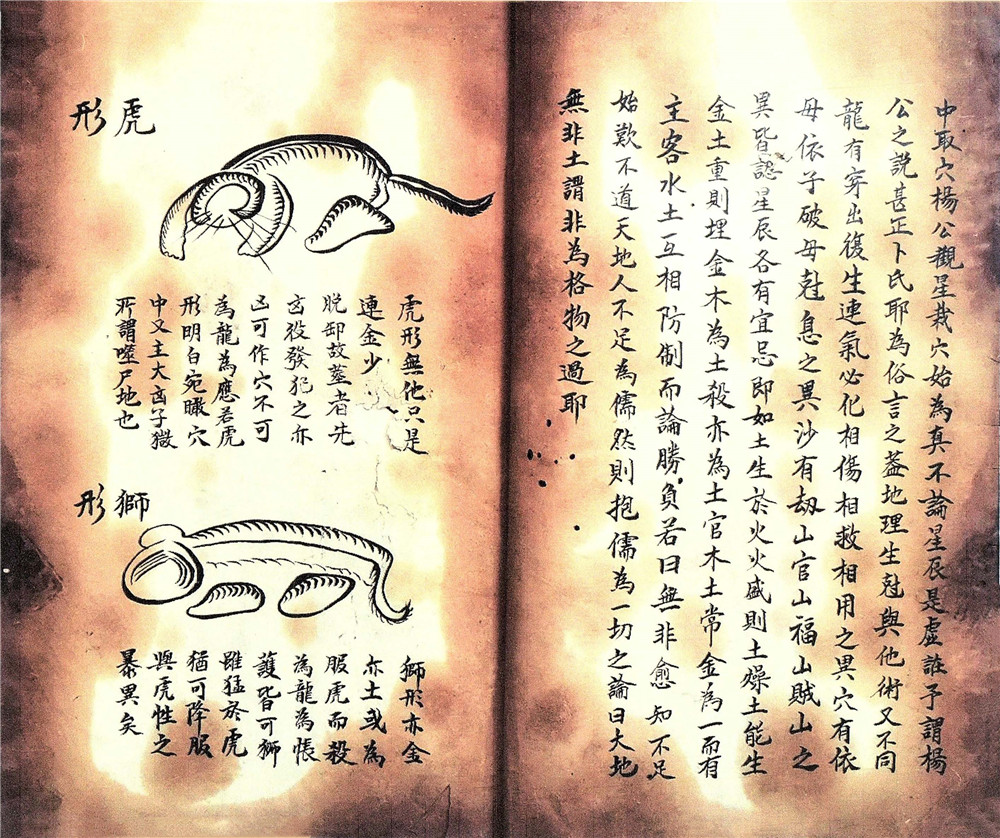 中取穴楊公觀星栽穴始為真不論星辰是虛誑予謂楊
公之説甚正卜氏耶為俗言之蓋地理生尅與他術又不同
龍有穿出復生連氣必化相傷相救相用之異穴有依
母依子破母尅息之異沙有刼山官山福山賊山之
異皆認星辰各有宜忌即如土生於火火盛則土燥土能生
金土重則埋金木為土殺亦為土官木土常金為一而有
主客水土互相防制而論勝負若曰無非愈知不足
始歎不道天地人不足為儒然則抱儒為一切之論曰大地
無非土謂非為格物之過耶
虎形
虎形無他只是
連金少
脱卸故塟者先
凶後發犯之亦
凶可作穴不可
為龍為應若虎
形明白宛瞰穴
中又主大凶子嶽
所謂噬尸地也
獅形
獅形亦金
亦土或為
服虎而殺
為龍為帳
護皆可獅
雖猛於虎
猶可降服
與虎性之
暴異矣